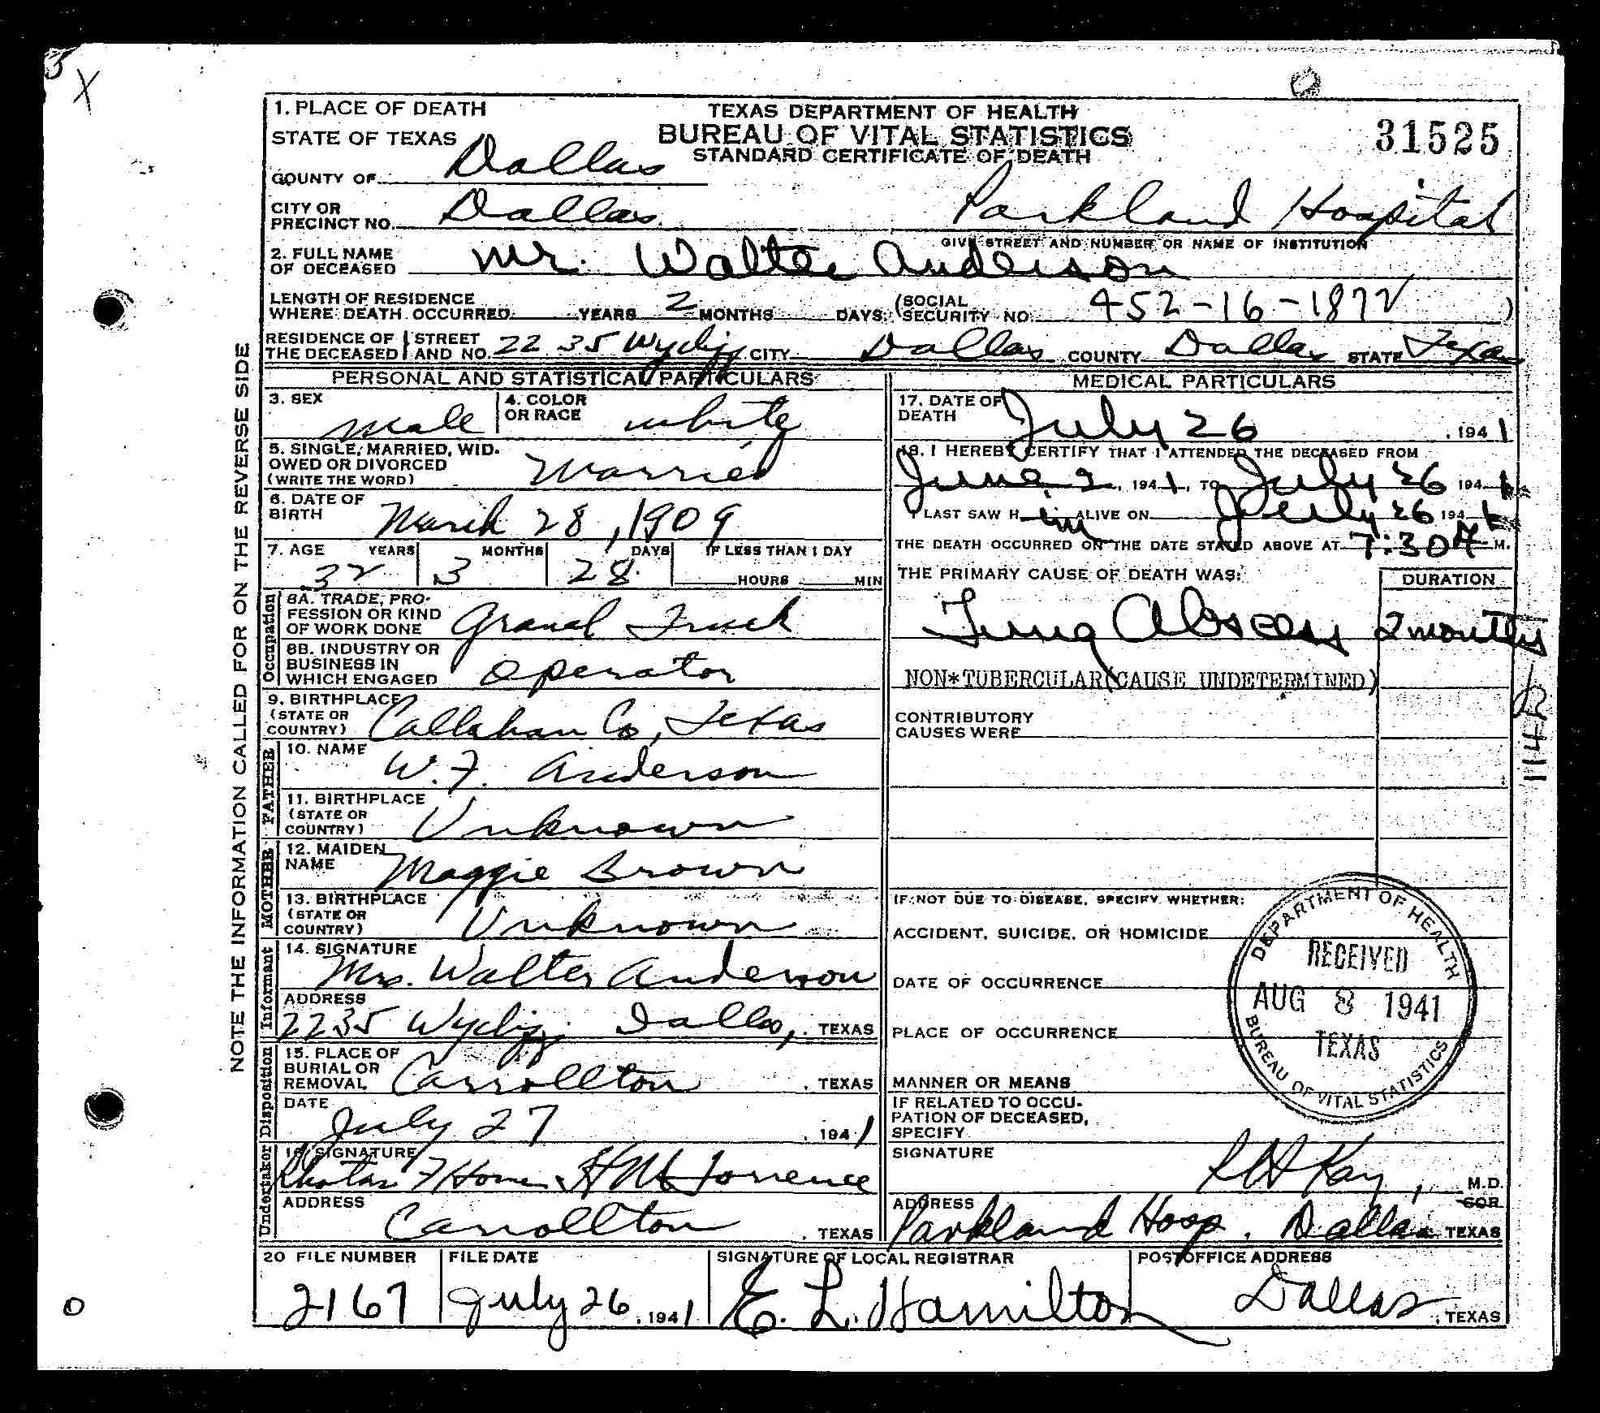 1. PLACE OF DEATH
STATE OF TEXAS
COUNTY OF Dallas
CITY OR PRECINCT NO. Dallas
TEXAS DEPARTMENT OF HEALTH
BUREAU OF VITAL STATISTICS
STANDARD CERTIFICATE OF DEATH
31525
Parkland Hospital
GIVE STREET AND NUMBER OR NAME OF INSTITUTION
2. FULL NAME OF DECEASED Mr. Walter Anderson
LENGTH OF RESIDENCE WHERE DEATH OCCURRED YEARS 2 MONTHS DAYS (SOCIAL SECURITY NO. 452-16-1872)
RESIDENCE OF THE DECEASED STREET AND NO. 2235 CITY Dallas COUNTY Dallas STATE Texas
PERSONAL AND STATISTICAL PARTICULARS
3. SEX male
4. COLOR OR RACE white
5. SINGLE, MARRIED, WIDOWED OR DIVORCED (WRITE THE WORD) Married
6. DATE OF BIRTH March 28, 1909
7. AGE YEARS 32 MONTHS 3 DAYS 28 IF LESS THAN 1 DAY HOURS MIN
Occupation
8A. TRADE, PROFESSION OR KIND OF WORK DONE Gravel Truck
8B. INDUSTRY OR BUSINESS IN WHICH ENGAGED operator
9. BIRTHPLACE (STATE OR COUNTRY) Callahan Co, Texas
FATHER
10. NAME W.F. Anderson
11. BIRTHPLACE (STATE OR COUNTRY) Unknown
MOTHER
12. MAIDEN NAME Maggie Brown
13. BIRTHPLACE (STATE OR COUNTRY) Unknown
Informant
14. SIGNATURE Mrs. Walter Anderson
ADDRESS 2235 Dallas, TEXAS
Disposition
15. PLACE OF BURIAL OR REMOVAL Carrollton, TEXAS
DATE July 27, 1941
Undertaker
16. SIGNATURE
ADDRESS Carrollton, TEXAS
MEDICAL PARTICULARS
17. DATE OF DEATH July 26, 1941
18. I HEREBY CERTIFY THAT I ATTENDED THE DECEASED FROM
June 2, 1941, TO July 26 1941
I LAST SAW H im ALIVE ON July 26 1941
THE DEATH OCCURRED ON THE DATE STATED ABOVE AT 7:30 A M.
THE PRIMARY CAUSE OF DEATH WAS: DURATION
Lung Abscess 2 months
NON*TUBERCULAR(CAUSE UNDETERMINED)
CONTRIBUTORY CAUSES WERE
IF NOT DUE TO DISEASE, SPECIFY WHETHER:
ACCIDENT, SUICIDE, OR HOMICIDE
DATE OF OCCURRENCE
PLACE OF OCCURRENCE
MANNER OR MEANS
IF RELATED TO OCCUPATION OF DECEASED, SPECIFY
SIGNATURE Kay, M.D.
ADDRESS Parkland Hosp. Dallas TEXAS
DEPARTMENT OF HEALTH
RECEIVED
AUG 8 1941
TEXAS
BUREAU OF VITAL STATISTICS
20 FILE NUMBER 2167
FILE DATE July 26, 1941
SIGNATURE OF LOCAL REGISTRAR E. L. Hamilton
POSTOFFICE ADDRESS Dallas, TEXAS
NOTE THE INFORMATION CALLED FOR ON THE REVERSE SIDE